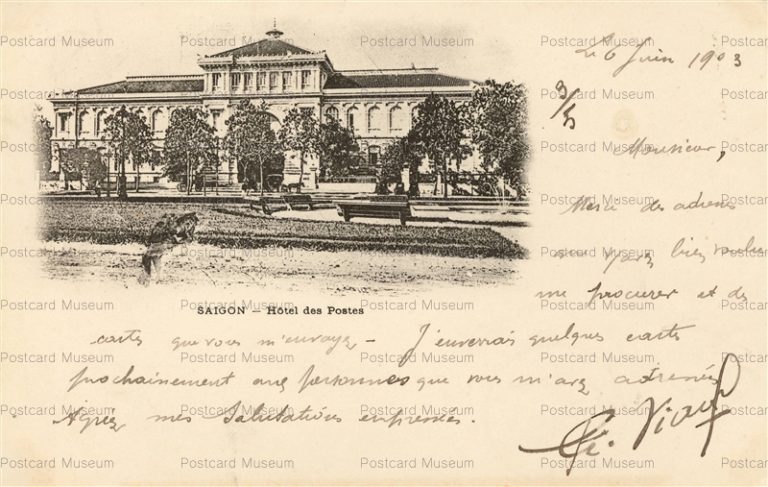 Le 6 Juin 1903
3/5
Monsieur,
Merci des adresses
que vous bien voulu
me procurer et de
SAIGON — Hôtel des Postes
cartes que vous m'envoyez — J'enverrais quelques cartes
prochainement aux personnes que vous m'avez adressées
Agréez mes Salutations empressées.
Postcard Museum